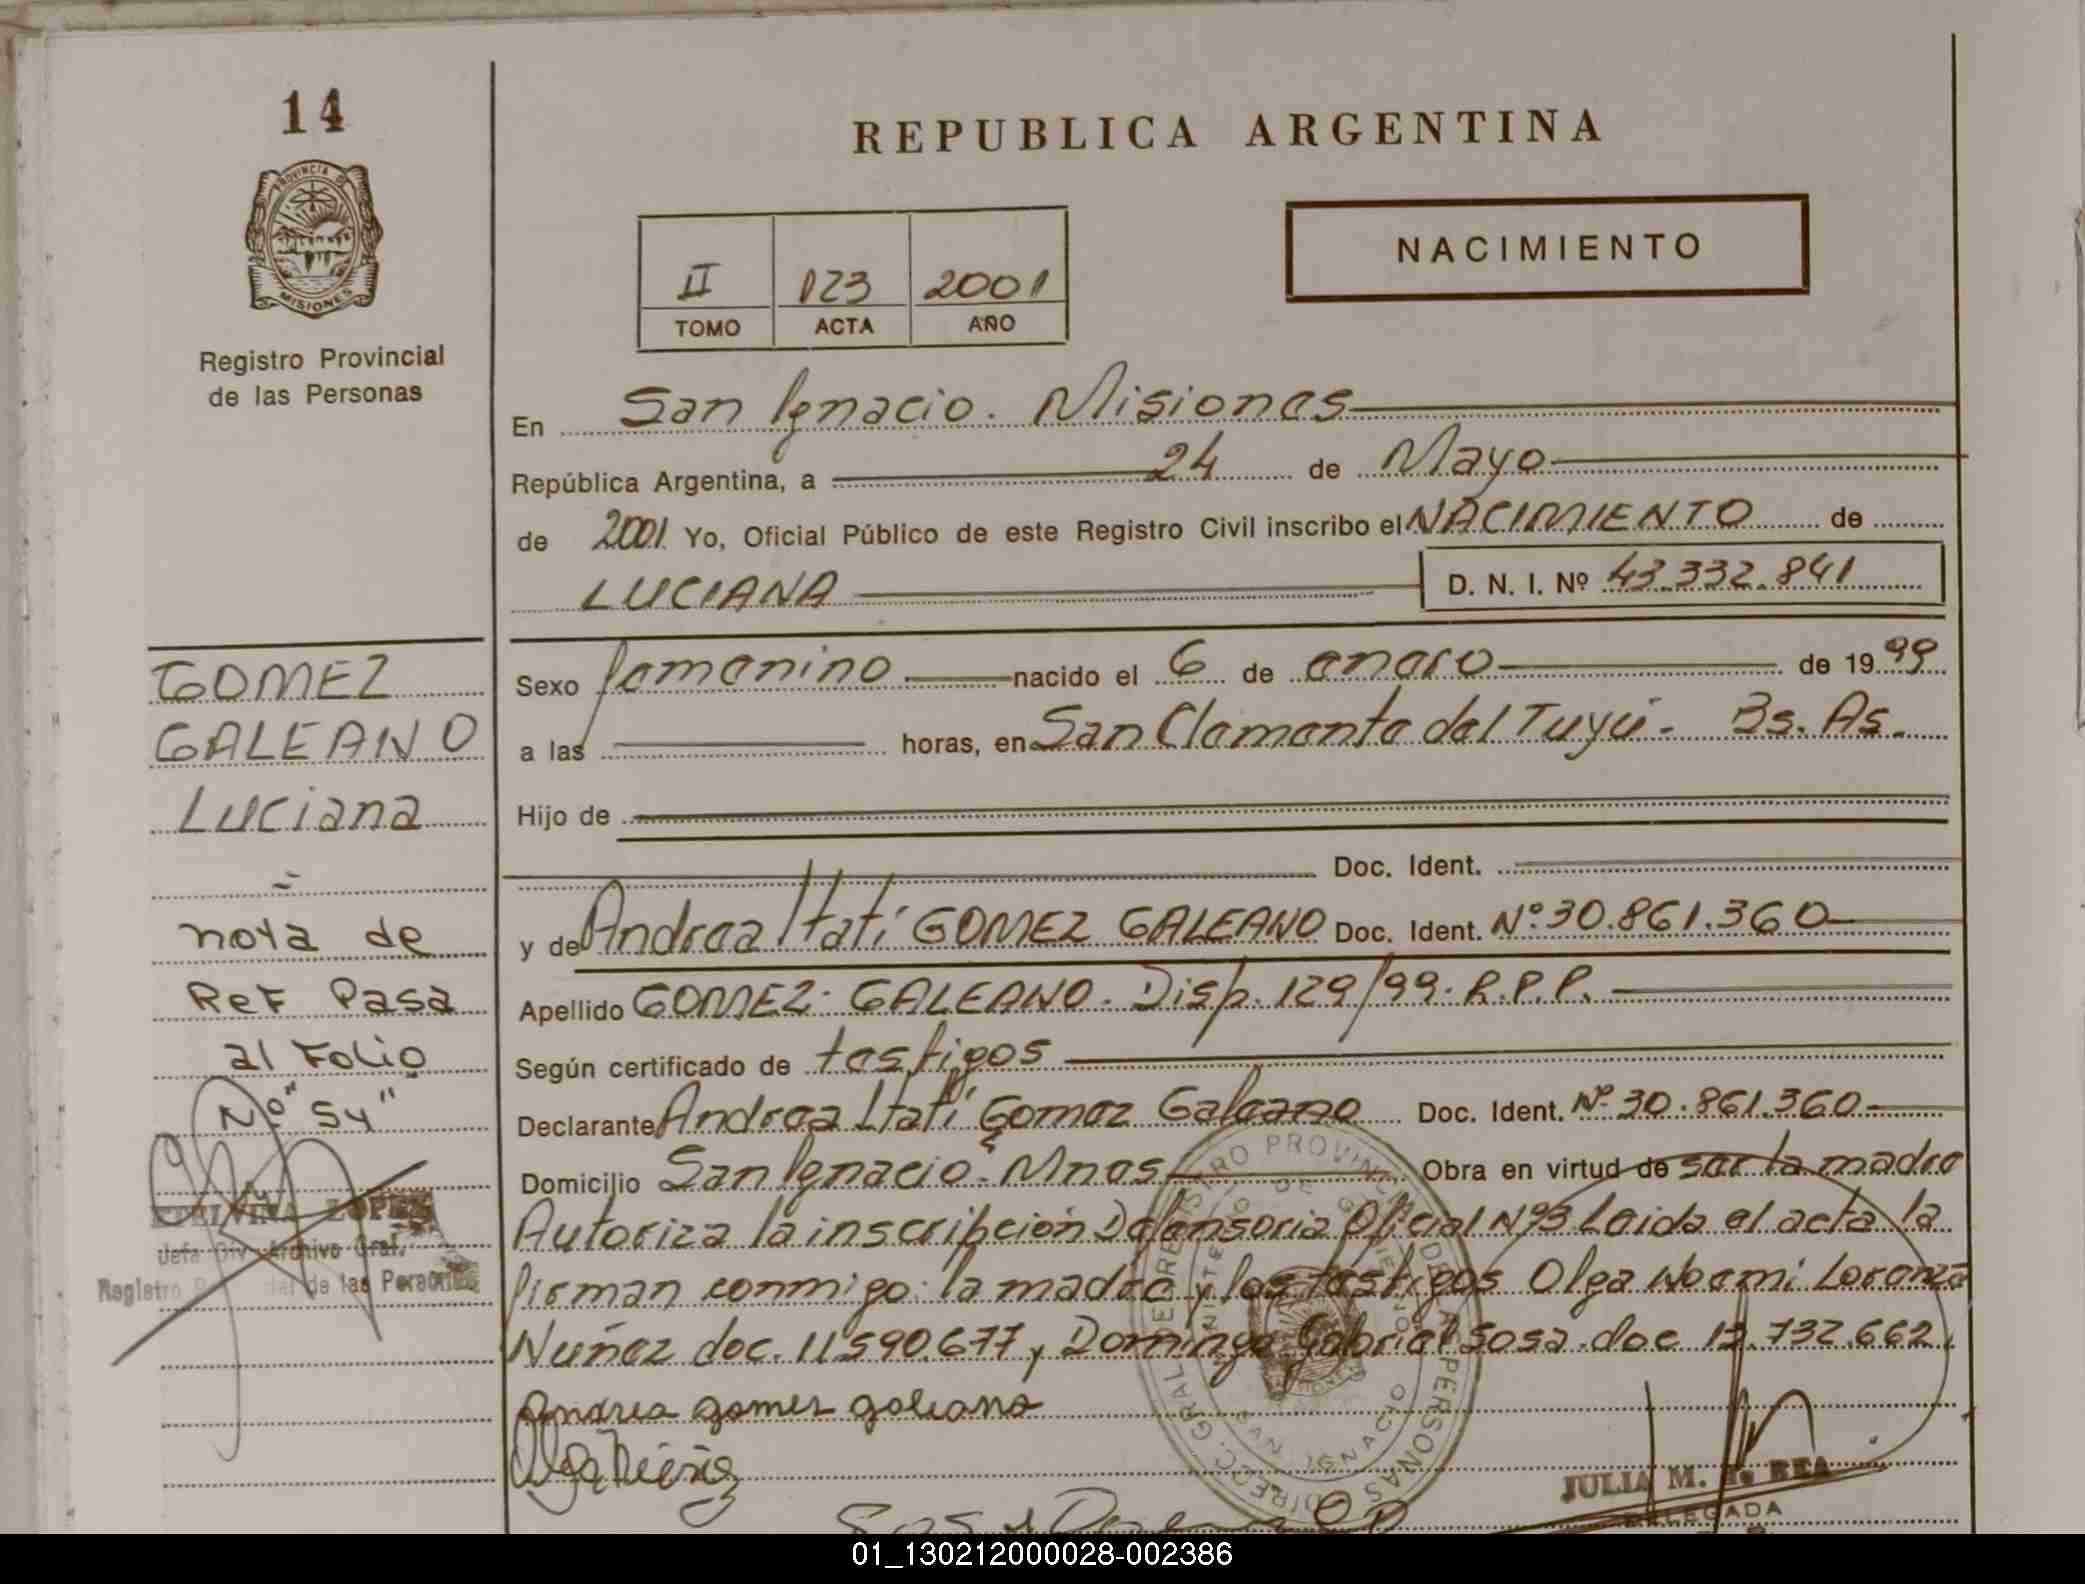 14
PROVINCIA DE
MISIONES
Registro Provincial
de las Personas
REPUBLICA ARGENTINA
NACIMIENTO
II 023 2001
TOMO ACTA AÑO
En San Ignacio. Misiones
República Argentina, a 24 de Mayo
de 2001 Yo, Oficial Público de este Registro Civil inscribo el NACIMIENTO de
LUCIANA D. N. I. Nº 43.332.841
GOMEZ
GALEANO
Luciana
nota de
Ref Pasa
al Folio
Nº "54"
ETELVINA LOPEZ
Jefa Div. Archivo Gral.
Registro de las Personas
Sexo femenino nacido el 6 de enero de 1999
a las horas, en San Clemente del Tuyú - Bs. As.
Hijo de
Doc. Ident.
y de Andrea Itatí GOMEZ GALEANO Doc. Ident. Nº 30.861.360
Apellido GOMEZ GALEANO. Disp. 129/99. R.P.P.
Según certificado de testigos
Declarante Andrea Itatí Gomez Galeano Doc. Ident. Nº 30.861.360
Domicilio San Ignacio - Mnes Obra en virtud de ser la madre
Autoriza la inscripción Defensoria Oficial Nº3 Leida el acta la
firman conmigo: la madre y los testigos Olga Noemi Lorenza
Nuñez doc. 11.590.677 y Domingo Gabriel Sosa. doc 12.732.662.
andrea gomez galeano
Olga Nuñez
JULIA M. REA
DELEGADA
DIRECC. GRAL. DE REGISTRO PROVINCIAL DE LAS PERSONAS
MINISTERIO DE GOBIERNO
SAN IGNACIO
01_130212000028-002386